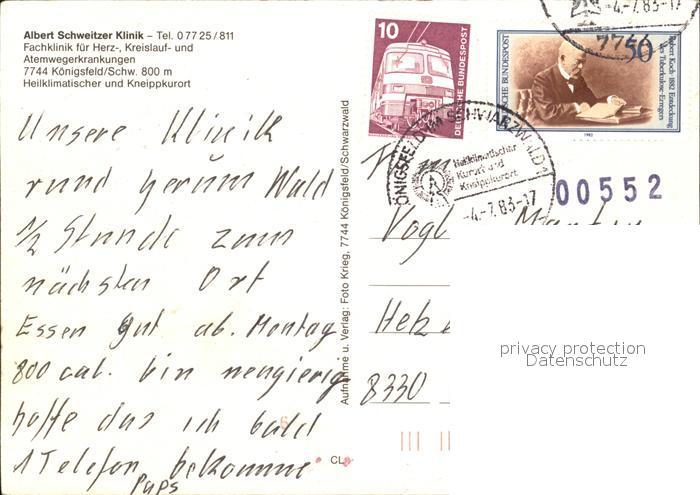 Albert Schweitzer Klinik – Tel. 0 77 25 / 811
Fachklinik für Herz-, Kreislauf- und
Atemwegerkrankungen
7744 Königsfeld/Schw. 800 m
Heilklimatischer und Kneippkurort
Unsere Klinik
rund herum Wald
1/2 Stunde zum
nächsten Ort
Essen gut ab. Montag
800 cal. bin neugierig
hoffe das ich bald
1 Telefon bekomme
Paps
Aufnahme u. Verlag: Foto Krieg, 7744 Königsfeld/Schwarzwald
CL
10
DEUTSCHE BUNDESPOST
50
DEUTSCHE BUNDESPOST
Robert Koch 1882 Entdeckung
des Tuberkulose-Erregers
1982
-4.-7.83-17
7744
KÖNIGSFELD IM SCHWARZWALD 1
Heilklimatischer
Kurort und
Kneippkurort
-4.-7.83-17
00552
Vogl
8330
privacy protection
Datenschutz